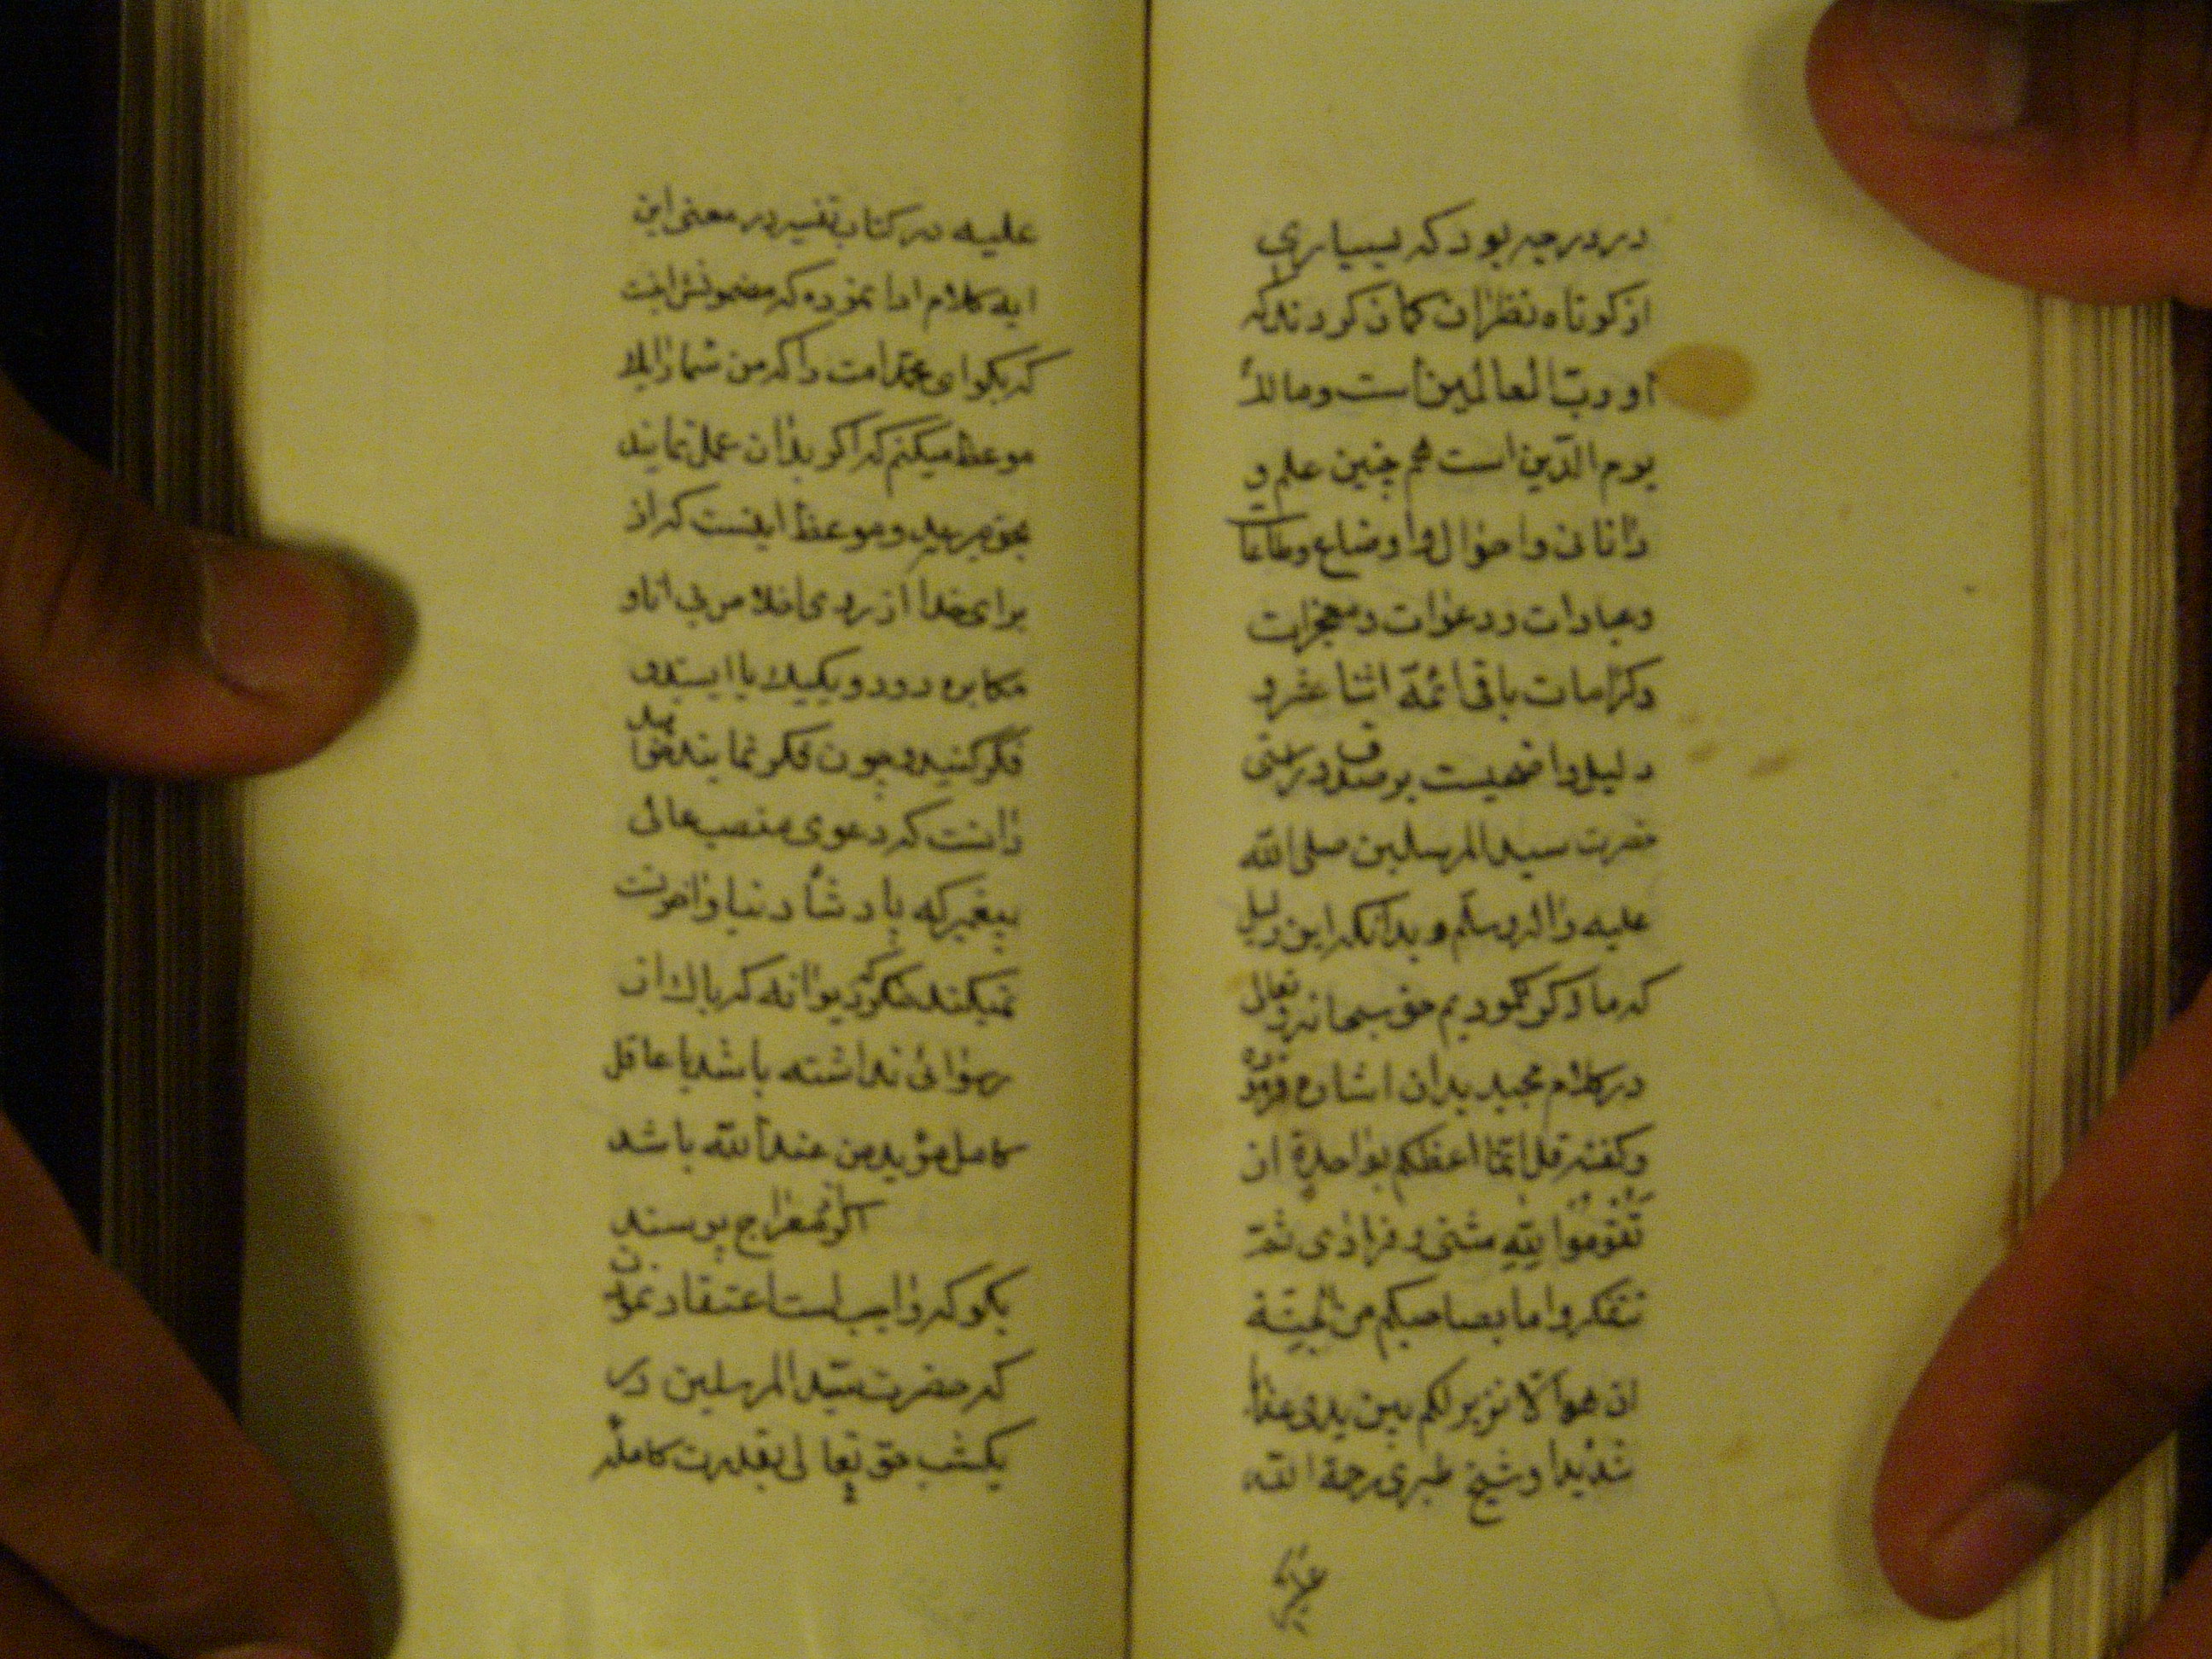 در درجه بود که بسیاری
از کوتاه نظران کمان کردند که
او رب العالمین است و مالک
یوم الدین است هم چنین علم و
دانائی و احوال و اوضاع و طاعات
و عبادات و دعوات و معجزات
و کرامات باقی ائمة اثنا عشر و
دلیل واضحیست بر صدق و راستی
حضرت سید المرسلین صلی الله
علیه واله وسلم و بدانکه این دلیل
که ما ذکر نمودیم حق سبحانه و تعالی
در کلام مجید بدان اشاره فرموده
و کفته قل انما اعظکم بواحدة ان
تقوموا لله مثنی و فرادی ثم
تتفکروا ما بصاحبکم من الجنة
ان هو الا نذیر لکم بین یدی عذاب
شدیدا و شیخ طبری رحمة الله
علیه
علیه در کتاب تفسیر در معنی این
ایه کلام ادا نموده که مضمونش اینست
که بکو ای محمد امت را که من شما را بیک
موعظه میکنم که اکر بدان عمل نمایند
بحق میرسید و موعظه اینست که از
برای خدا از روی اخلاص بی انک
مکابره دو دو و یک یک با ایستید و
فکر کنید و چون فکر نمایند خواهید
دانست که دعوی منصب عالی
پیغمبر که پادشاه دنیا و اخرتست
نمیکند مکر دیوانه که باک از
رسوائی نداشته باشد یا عاقل
کامل مؤید من عند الله باشد
اکر از معراج پرسند
بکو که واجب است اعتقاد نمودن
که حضرت سید المرسلین در
یکشب حق تعالی بقدرت کامله